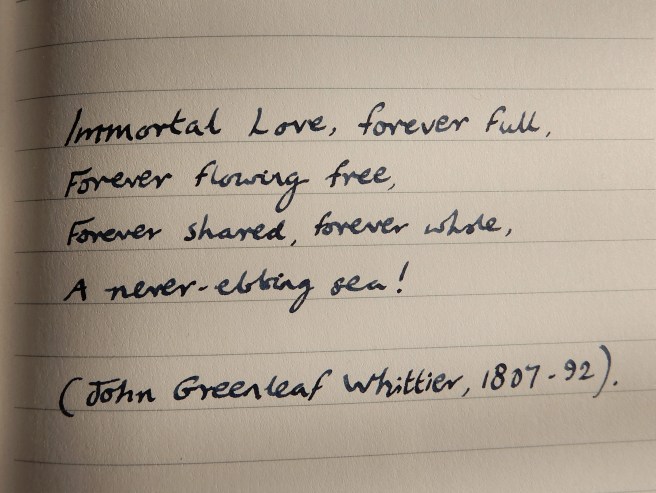 Immortal Love, forever full,
Forever flowing free,
Forever shared, forever whole,
A never-ebbing sea!
(John Greenleaf Whittier, 1807-92).